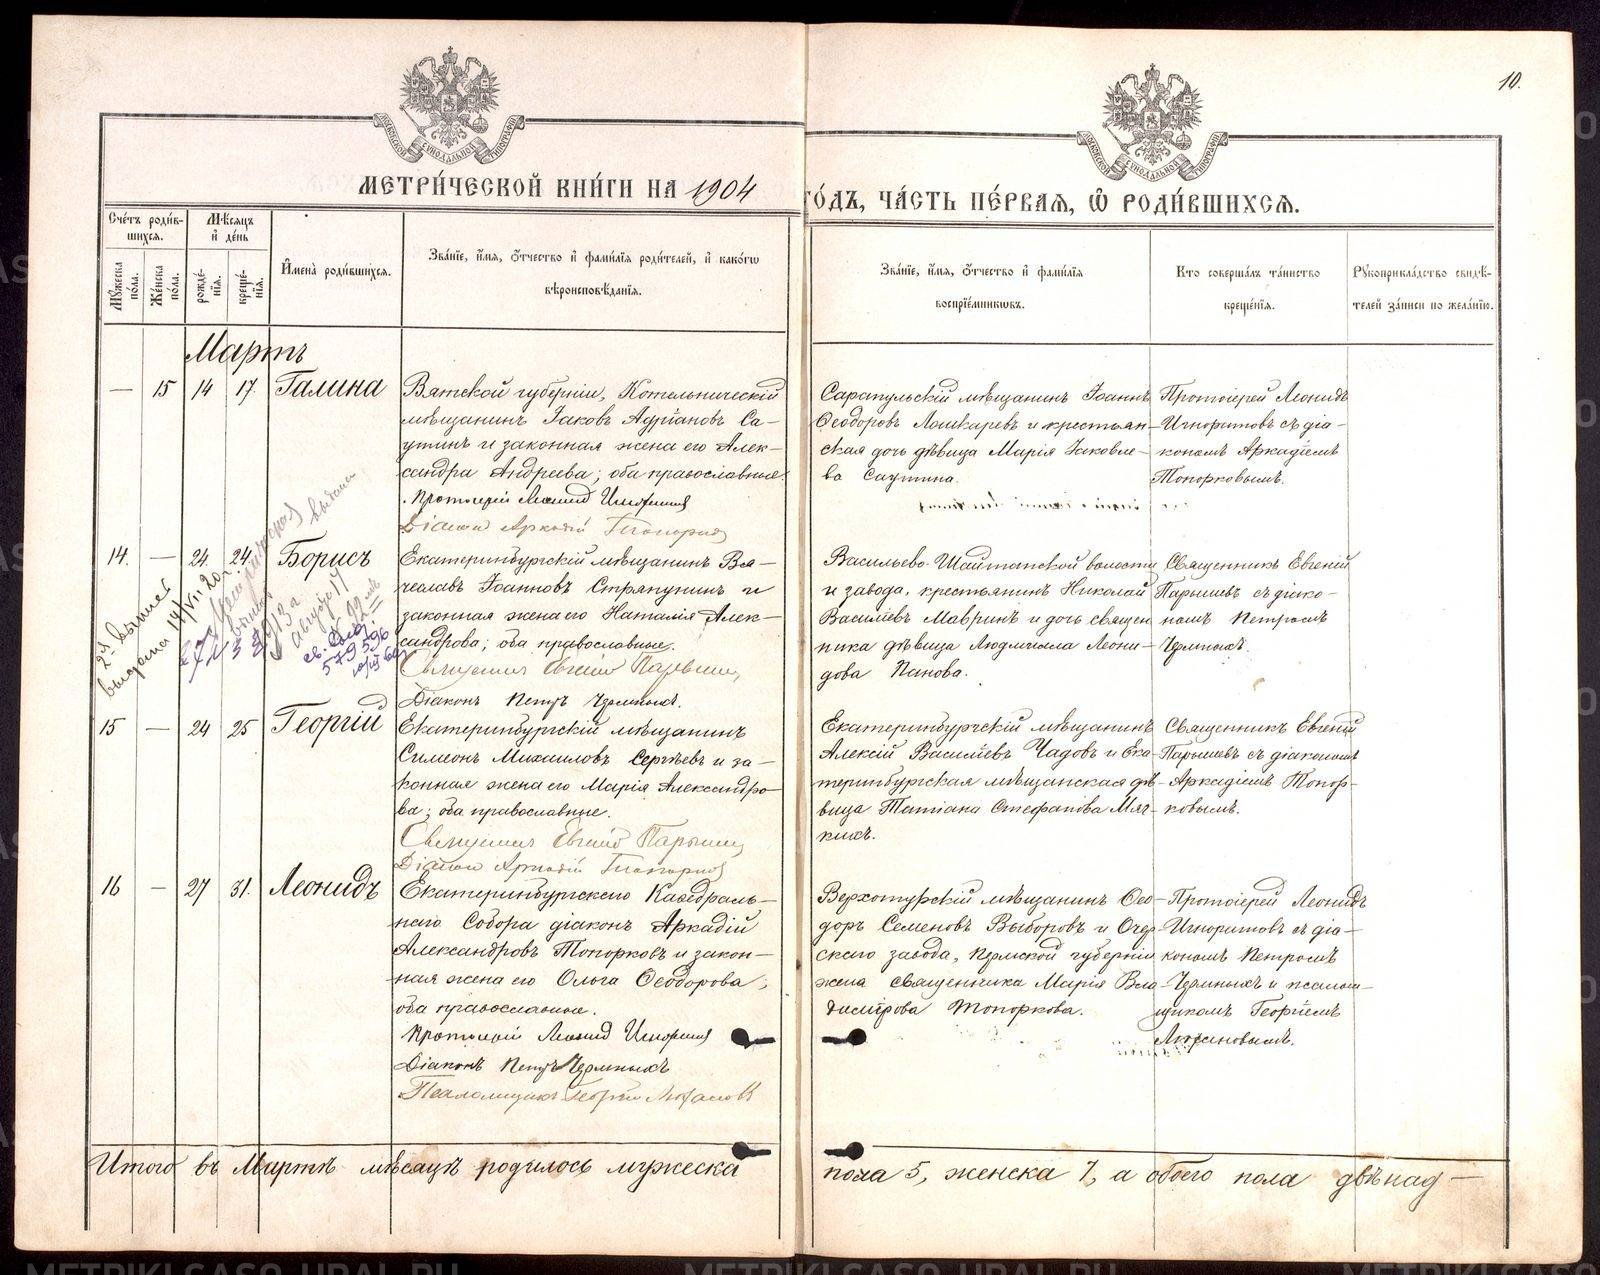 10.
МЕТРИ́ЧЕСКОЙ КНИ́ГИ НА 1904
ГО́ДЪ, ЧА́СТЬ ПЕ́РВАЯ, Ѽ РОДИ́ВШИХСЯ.
Сче́тъ роди́в-
шихся.
Мѣ́сяцъ
и҆ де́нь
Му́жеска
по́ла.
Же́нска
по́ла.
рожде́-
нїя.
креще́-
нїя.
И҆мена̀ роди́вшихся.
Зва́нїе, и҆́мя, ѻ҆́тчество и҆ фами́лїя роди́телей, и҆ како́гѡ
вѣроисповѣ́данїя.
Зва́нїе, и҆́мя, ѻ҆́тчество и҆ фами́лїя
воспрїе́мникѡвъ.
Кто̀ соверша́лъ та́инство
креще́нїя.
Рукоприкла́дство свидѣ́-
телей за́писи по жела́нїю.
Мартъ
— 15 14 17. Галина
Вятской губернiи, Котельническiй
мѣщанинъ Iаковъ Адрiановъ Са-
утинъ и законная жена его Алек-
сандра Андреева; оба православные.
Протоiерей Леонид Игноритов
Дiакон Аркадiй Топорков
Сарапульскiй мѣщанинъ Iоаннъ
Ѳеодоровъ Лошкаревъ и крестьян-
ская дочь дѣвица Марiя Iаковле-
ва Саутина.
Протоiерей Леонидъ
Игноритовъ съ дiа-
кономъ Аркадiемъ
Топорковымъ.
14. — 24. 24. Борисъ
Екатеринбургскiй мѣщанинъ Вя-
чеславъ Iоанновъ Стряпунинъ и
законная жена его Наталiя Алек-
сандрова; оба православные.
Священник Евгенiй Парышев
Дiаконъ Петръ Чермныхъ.
Васильево-Шайтанской волости
и завода, крестьянинъ Николай
Василiевъ Мавринъ и дочь священ
ника дѣвица Людмила Леони-
дова Панова.
Священникъ Евгенiй
Парышевъ съ дiако-
номъ Петромъ
Чермныхъ.
2й выписъ
выдана 14/VII 20
выдана
августа 17
579596
15 — 24 25 Георгiй
Екатеринбургскiй мѣщанинъ
Симеонъ Михаиловъ Сергѣевъ и за-
конная жена его Марiя Александро-
ва; оба православные.
Священник Евгенiй Парышев
Дiакон Аркадiй Топорков
Екатеринбургскiй мѣщанинъ
Алексiй Василiевъ Чадовъ и Ека-
теринбургская мѣщанская дѣ-
вица Татiана Стефанова Мяг-
кихъ.
Священникъ Евгенiй
Парышевъ съ дiакономъ
Аркадiемъ Топор-
ковымъ.
16 — 27 31. Леонидъ
Екатеринбургскаго Каѳедраль-
наго Собора дiаконъ Аркадiй
Александровъ Топорковъ и закон-
ная жена его Ольга Ѳеодорова;
оба православные.
Протоiерей Леонид Игноритов
Дiаконъ Петръ Чермныхъ
Псаломщикъ Георгiй
Верхотурскiй мѣщанинъ Ѳео-
доръ Семеновъ Выборовъ и Очер
скаго завода, Пермской губернiи
жена священника Марiя Вла-
димiрова Топоркова.
Протоiерей Леонидъ
Игноритовъ съ дiа-
кономъ Петромъ
Чермныхъ и псалом-
щикомъ Георгiемъ
Итого въ Мартѣ мѣсяцѣ родилось мужеска
пола 5, женска 7, а обоего пола двѣнад-